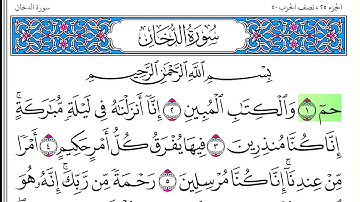 الجزء ٢٥ ، نصف الحزب ٥٠
سورة الدخان
سُورَةُ الدُّخَانِ
بِسْمِ اللَّهِ الرَّحْمَٰنِ الرَّحِيمِ
حمٓ ١ وَالْكِتَابِ الْمُبِينِ ٢ إِنَّا أَنزَلْنَاهُ فِي لَيْلَةٍ مُّبَارَكَةٍ ۚ
إِنَّا كُنَّا مُنذِرِينَ ٣ فِيهَا يُفْرَقُ كُلُّ أَمْرٍ حَكِيمٍ ٤ أَمْرًا
مِّنْ عِندِنَا ۚ إِنَّا كُنَّا مُرْسِلِينَ ٥ رَحْمَةً مِّن رَّبِّكَ ۚ إِنَّهُ هُوَ